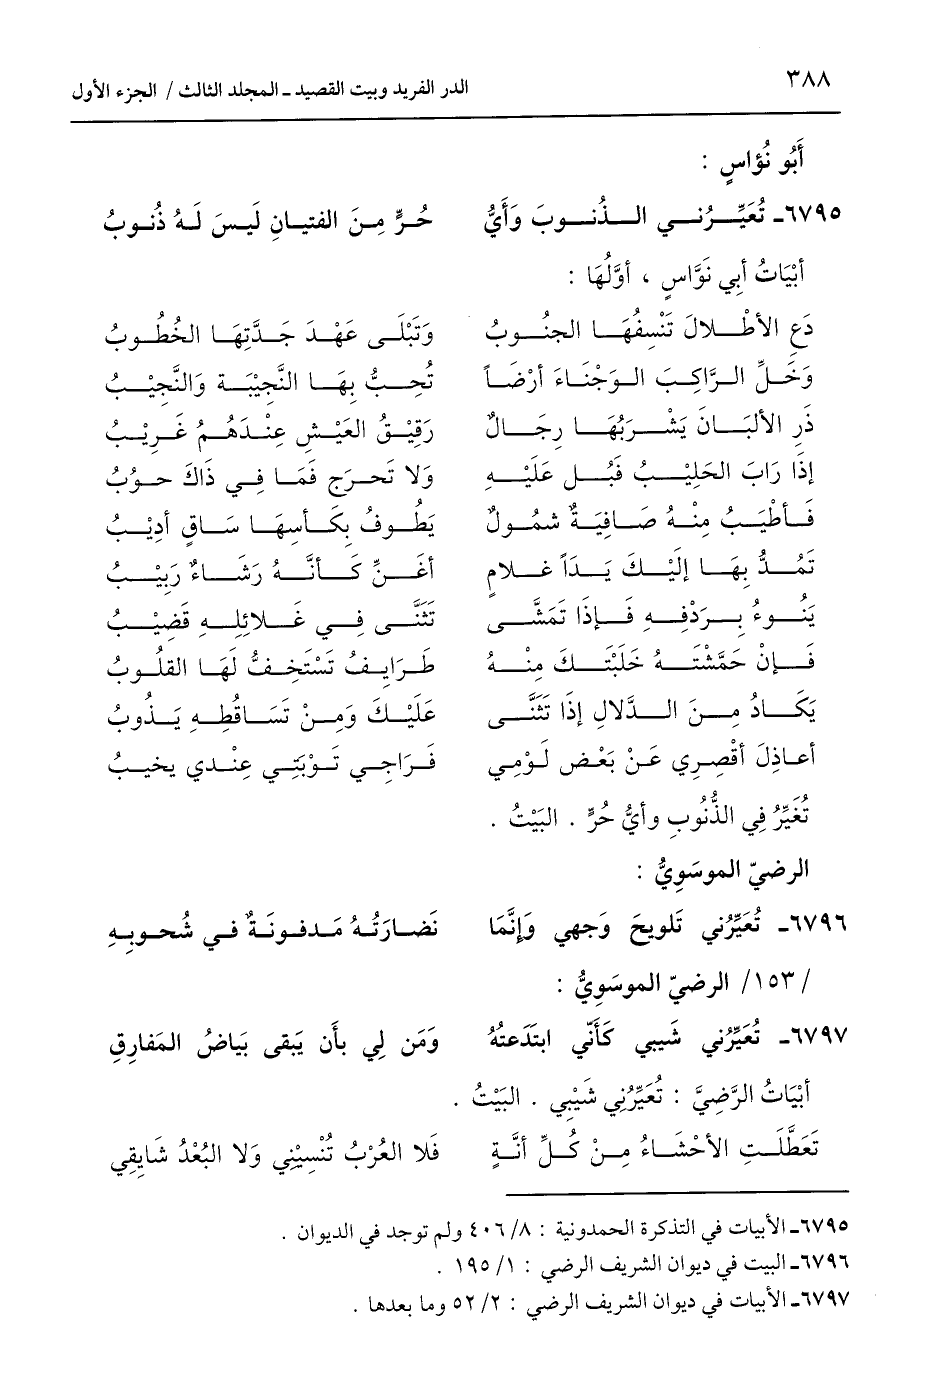 ٣٨٨
الدر الفريد وبيت القصيد ـ المجلد الثالث / الجزء الأول
أَبُو نُؤَاسٍ :
٦٧٩٥ـ تُعَيِّرُنِي الذُنُوبَ وَأَيُّ حُرٍّ مِنَ الفتيانِ لَيسَ لَهُ ذُنوبُ
أَبْيَاتُ أبِي نَوَّاسٍ ، أوَّلُهَا :
دَعِ الأطْلالَ تَنْسِفُهَا الجنُوبُ وَتَبْلَى عَهْدَ جَدَّتِهَا الخُطُوبُ
وَخَلِّ الرَّاكِبَ الوَجْنَاءَ أرْضَاً تُحِبُّ بِهَا النَّجِيْبَةَ وَالنَّجِيْبُ
ذَرِ الألبَانَ يَشْرَبُهَا رِجَالٌ رَقِيْقُ العَيْشِ عِنْدَهُمُ غَرِيْبُ
إذَا رَابَ الحَلِيْبُ فَبُل عَلَيْهِ وَلا تَحرَج فَمَا فِي ذَاكَ حوُبُ
فَأطْيَبُ مِنْهُ صَافِيَةٌ شمُولٌ يَطُوفُ بِكَأسِهَا سَاقٍ أدِيْبُ
تَمُدُّ بِهَا إلَيْكَ يَدَاً غلامٍ أغَنِّ كَأنَّهُ رَشَاءٌ رَبِيْبُ
يَنُوءُ بِرَدْفِهِ فَإذَا تَمَشَّى تَثَنَّى فِي غَلائِلِهِ قَضِيْبُ
فَإنْ جَمَّشْتَهُ خَلَبْتَكَ مِنْهُ طَرَايِفُ تَسْتَخفُّ لَهَا القلُوبُ
يَكَادُ مِنَ الدَّلالِ إذَا تَثَنَّى عَلَيْكَ وَمِنْ تَسَاقطِهِ يَذُوبُ
أعاذِلَ أقْصِرِي عَنْ بَعْضِ لَوْمِي فَرَاجِي تَوْبَتِي عِنْدِي يخيبُ
تُعَيِّرُ فِي الذُّنُوبِ وأيُّ حُرٍّ . البَيْتُ .
الرضيّ الموسَوِيُّ :
٦٧٩٦ـ تُعَيِّرُني تَلويحَ وَجهي وَإِنَّمَا نَضارَتُهُ مَدفونَةٌ في شُحوبِهِ
/ ١٥٣/ الرضيّ الموسَوِيُّ :
٦٧٩٧ـ تُعَيِّرُني شَيبي كَأَنّي ابتَدَعتُهُ وَمَن لِي بِأَن يَبقى بَياضُ المَفارِقِ
أَبْيَاتُ الرَّضِيَّ : تُعَيِّرُنِي شَيْبِي . البَيْتُ .
تَعَطَّلَتِ الأحْشَاءُ مِنْ كُلِّ أنَّةٍ فَلا العُرْبُ تُنْسِيْنِي وَلا البُعْدُ شَايِقِي
٦٧٩٥ـ الأبيات في التذكرة الحمدونية : ٨/ ٤٠٦ ولم توجد في الديوان .
٦٧٩٦ـ البيت في ديوان الشريف الرضي : ١/ ١٩٥ .
٦٧٩٧ـ الأبيات في ديوان الشريف الرضي : ٢/ ٥٢ وما بعدها .